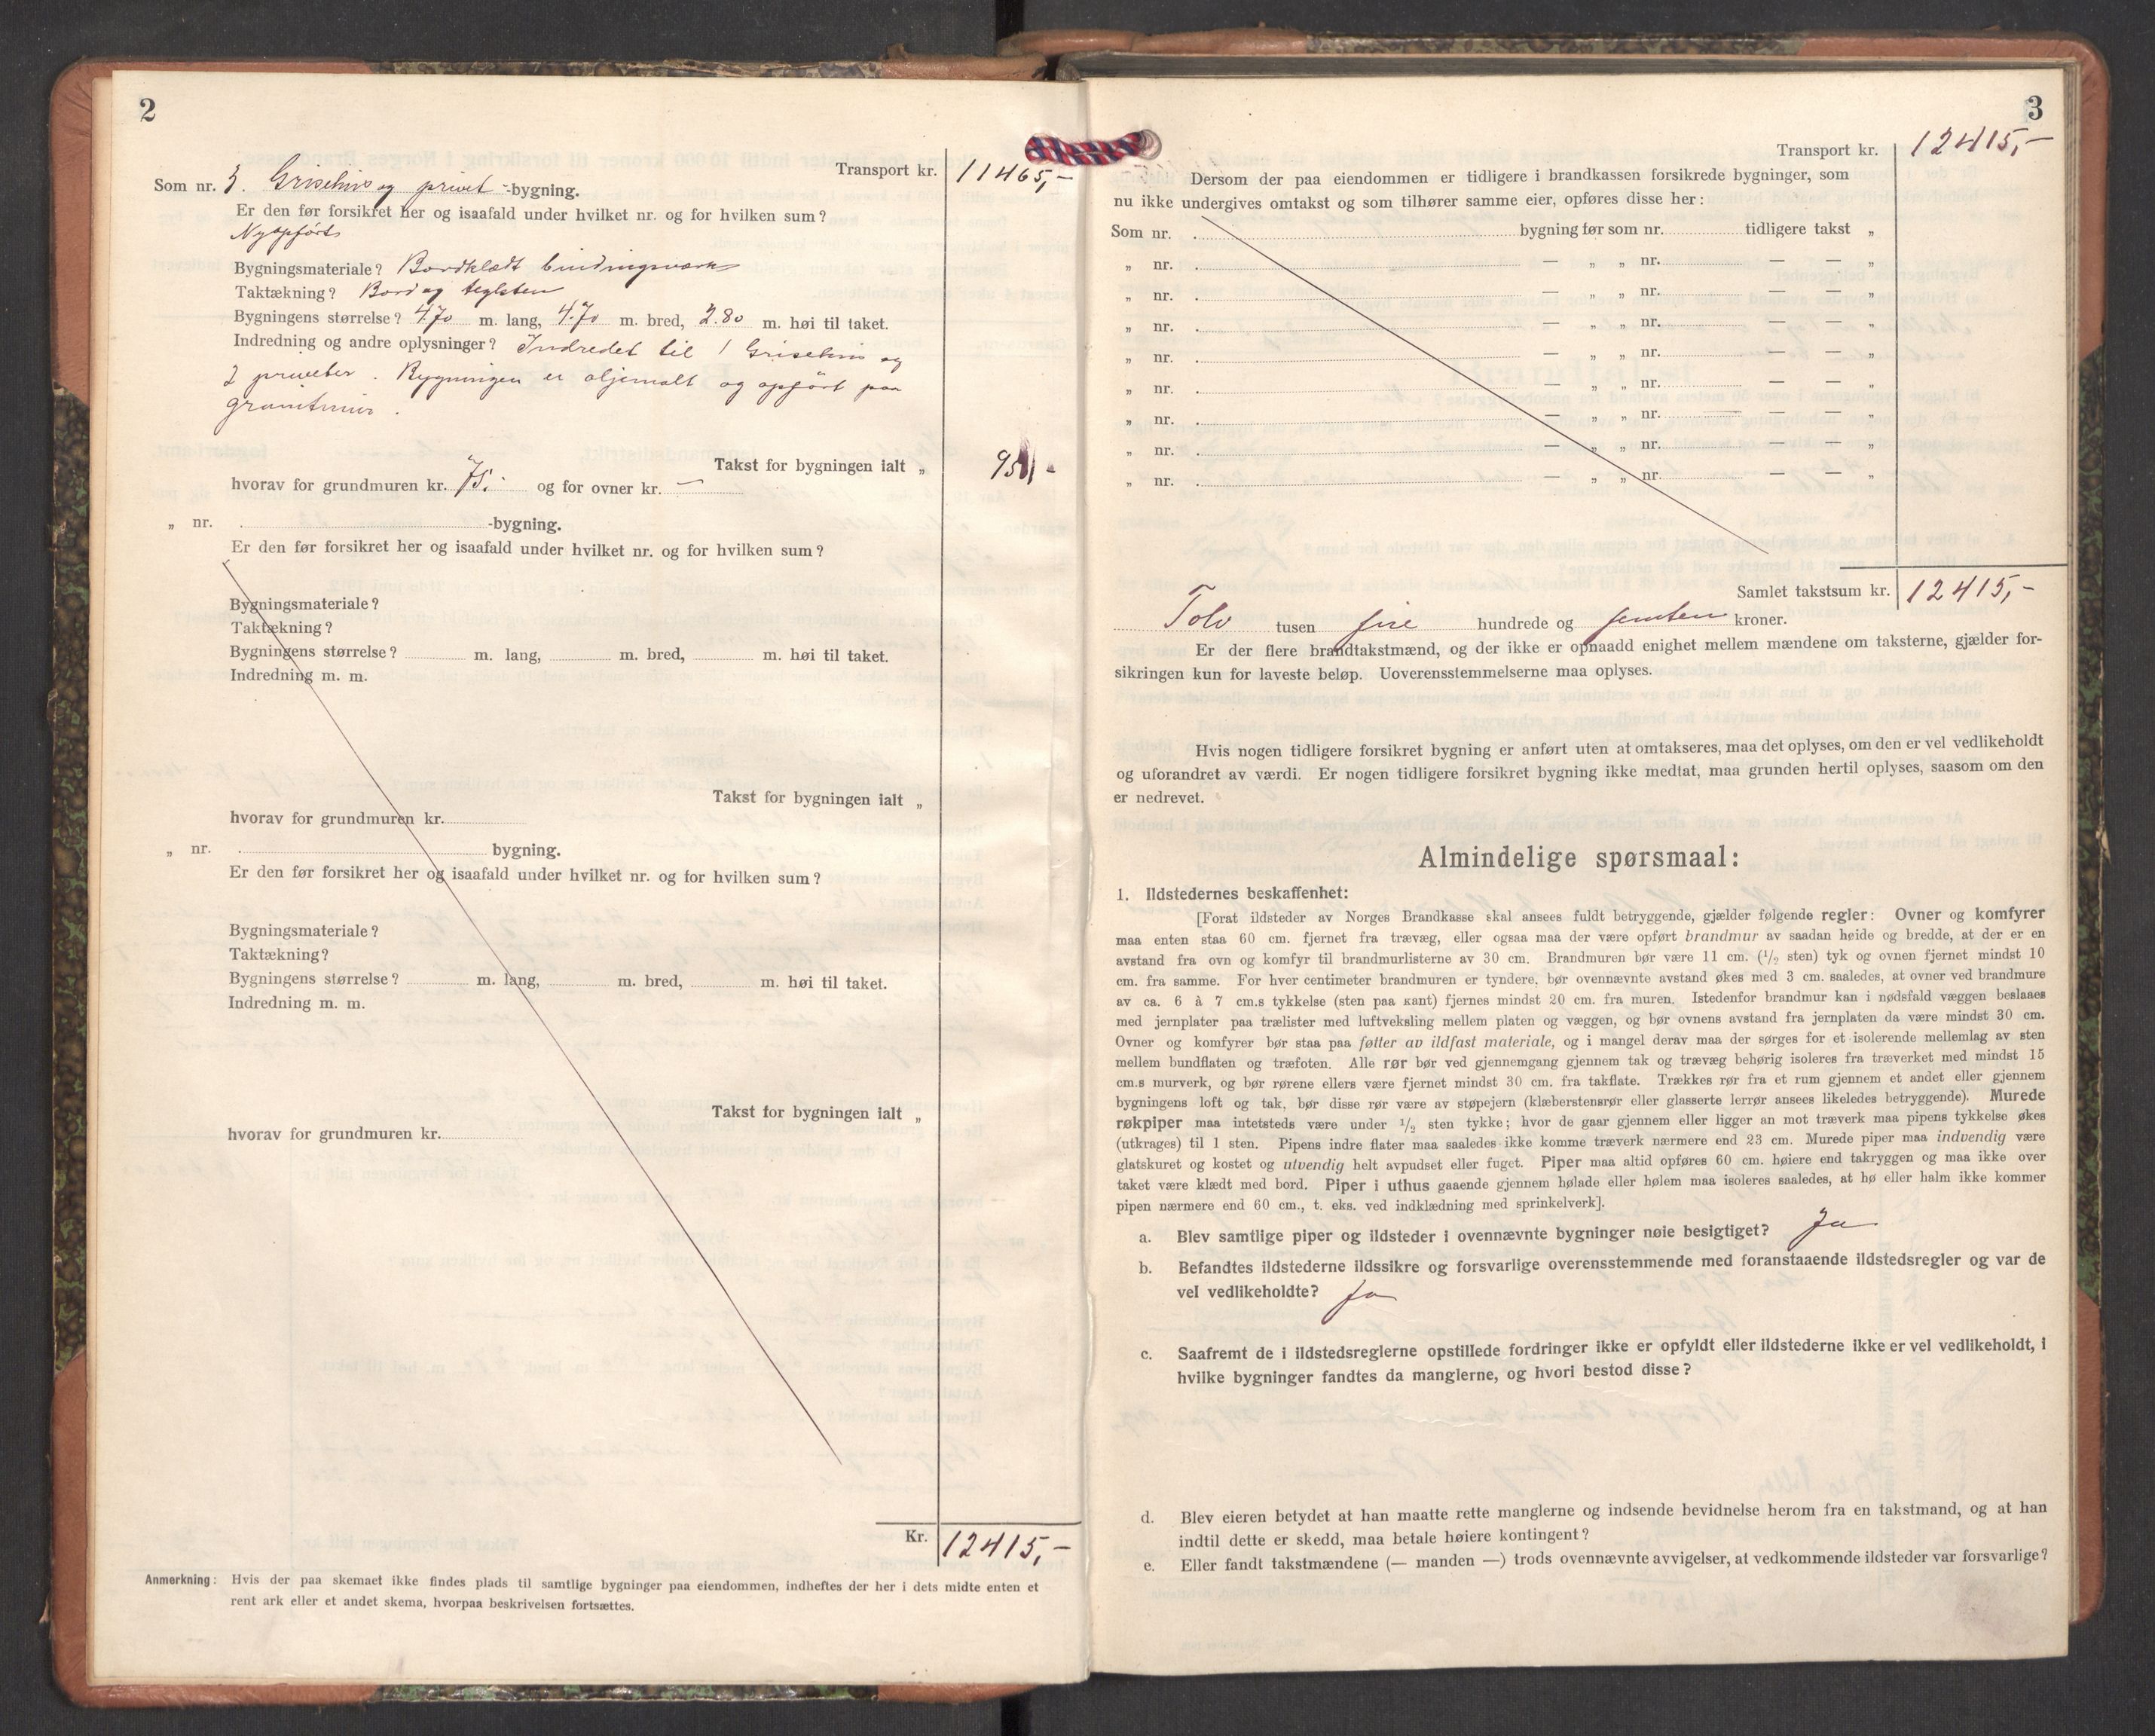 2
Transport kr. 11465,-
Som nr. 3. Grisehus og privet -bygning.
Er den før forsikret her og isaafald under hvilket nr. og for hvilken sum?
Nyopført
Bygningsmateriale? Bordklædt bindingsværk
Taktækning? Bord og teglsten
Bygningens størrelse? 4.70 m. lang, 4.70 m. bred, 2.80 m. høi til taket.
Indredning og andre oplysninger? Indredet til 1 Grisehus og
2 priveter. Bygningen er oljemalt og opført paa
granitmur.
Takst for bygningen ialt „ 950,-
hvorav for grundmuren kr. 75.- og for ovner kr. —
„ nr. -bygning.
Er den før forsikret her og isaafald under hvilket nr. og for hvilken sum?
Bygningsmateriale?
Taktækning?
Bygningens størrelse? m. lang, m. bred, m. høi til taket.
Indredning m. m.
Takst for bygningen ialt „
hvorav for grundmuren kr.
„ nr. bygning.
Er den før forsikret her og isaafald under hvilket nr. og for hvilken sum?
Bygningsmateriale?
Taktækning?
Bygningens størrelse? m. lang, m. bred, m. høi til taket.
Indredning m. m.
Takst for bygningen ialt „
hvorav for grundmuren kr.
Kr. 12415,-
Anmerkning: Hvis der paa skemaet ikke findes plads til samtlige bygninger paa eiendommen, indheftes der her i dets midte enten et
rent ark eller et andet skema, hvorpaa beskrivelsen fortsættes.
3
Transport kr. 12415,-
Dersom der paa eiendommen er tidligere i brandkassen forsikrede bygninger, som
nu ikke undergives omtakst og som tilhører samme eier, opføres disse her:
Som nr. bygning før som nr. tidligere takst „
„ nr. — „ „ nr. — — „
„ nr. — „ „ nr. — — „
„ nr. — „ „ nr. — — „
„ nr. — „ „ nr. — — „
„ nr. — „ „ nr. — — „
„ nr. — „ „ nr. — — „
„ nr. — „ „ nr. — — „
„ nr. — „ „ nr. — — „
Samlet takstsum kr. 12415,-
Tolv tusen fire hundrede og femten kroner.
Er der flere brandtakstmænd, og der ikke er opnaadd enighet mellem mændene om taksterne, gjælder for-
sikringen kun for laveste beløp. Uoverensstemmelserne maa oplyses.
Hvis nogen tidligere forsikret bygning er anført uten at omtakseres, maa det oplyses, om den er vel vedlikeholdt
og uforandret av værdi. Er nogen tidligere forsikret bygning ikke medtat, maa grunden hertil oplyses, saasom om den
er nedrevet.
Almindelige spørsmaal:
1. Ildstedernes beskaffenhet:
[Forat ildsteder av Norges Brandkasse skal ansees fuldt betryggende, gjælder følgende regler: Ovner og komfyrer
maa enten staa 60 cm. fjernet fra trævæg, eller ogsaa maa der være opført brandmur av saadan høide og bredde, at der er en
avstand fra ovn og komfyr til brandmurlisterne av 30 cm. Brandmuren bør være 11 cm. (1/2 sten) tyk og ovnen fjernet mindst 10
cm. fra samme. For hver centimeter brandmuren er tyndere, bør ovennævnte avstand økes med 3 cm. saaledes, at ovner ved brandmure
av ca. 6 à 7 cm.s tykkelse (sten paa kant) fjernes mindst 20 cm. fra muren. Istedenfor brandmur kan i nødsfald væggen beslaaes
med jernplater paa trælister med luftveksling mellem platen og væggen, og bør ovnens avstand fra jernplaten da være mindst 30 cm.
Ovner og komfyrer bør staa paa føtter av ildfast materiale, og i mangel derav maa der sørges for et isolerende mellemlag av sten
mellem bundflaten og træfoten. Alle rør bør ved gjennemgang gjennem tak og trævæg behørig isoleres fra træverket med mindst 15
cm.s murverk, og bør rørene ellers være fjernet mindst 30 cm. fra takflate. Trækkes rør fra et rum gjennem et andet eller gjennem
bygningens loft og tak, bør disse rør være av støpejern (klæberstensrør eller glasserte lerrør ansees likeledes betryggende). Murede
røkpiper maa intetsteds være under 1/2 sten tykke; hvor de gaar gjennem eller ligger an mot træverk maa pipens tykkelse økes
(utkrages) til 1 sten. Pipens indre flater maa saaledes ikke komme træverk nærmere end 23 cm. Murede piper maa indvendig være
glatskuret og kostet og utvendig helt avpudset eller fuget. Piper maa altid opføres 60 cm. høiere end takryggen og maa ikke over
taket være klædt med bord. Piper i uthus gaaende gjennem hølade eller hølem maa isoleres saaledes, at hø eller halm ikke kommer
pipen nærmere end 60 cm., t. eks. ved indklædning med sprinkelverk].
a. Blev samtlige piper og ildsteder i ovennævnte bygninger nøie besigtiget? Ja
b. Befandtes ildstederne ildssikre og forsvarlige overensstemmende med foranstaaende ildstedsregler og var de
vel vedlikeholdte? Ja
c. Saafremt de i ildstedsreglerne opstillede fordringer ikke er opfyldt eller ildstederne ikke er vel vedlikeholdt, i
hvilke bygninger fandtes da manglerne, og hvori bestod disse?
d. Blev eieren betydet at han maatte rette manglerne og indsende bevidnelse herom fra en takstmand, og at han
indtil dette er skedd, maa betale høiere kontingent?
e. Eller fandt takstmændene (— manden —) trods ovennævnte avvigelser, at vedkommende ildsteder var forsvarlige?